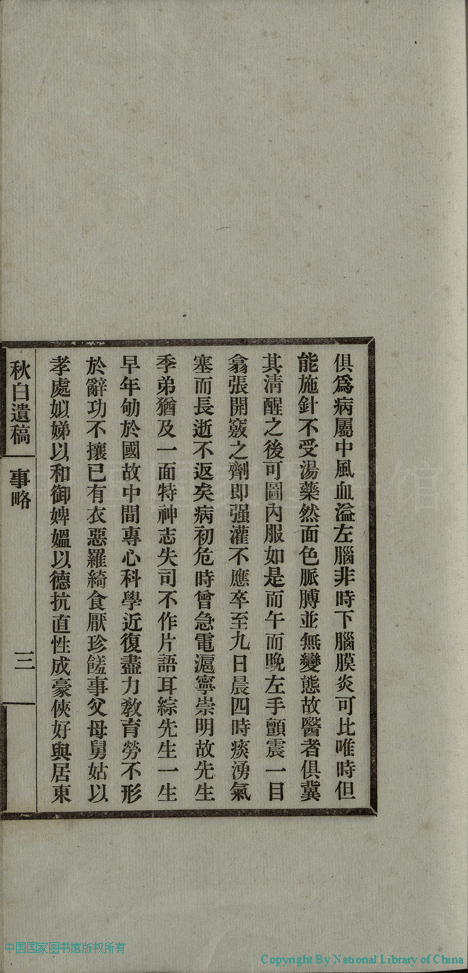 俱爲病屬中風血溢左腦非時下腦膜炎可比唯時但
能施針不受湯藥然面色脈膊並無變態故醫者俱冀
其淸醒之後可圖內服如是而午而晚左手顫震一目
翕張開竅之劑即强灌不應卒至九日晨四時痰湧氣
塞而長逝不返矣病初危時曾急電滬寧崇明故先生
季弟猶及一面特神志失司不作片語耳綜先生一生
早年劬於國故中間專心科學近復盡力敎育勞不形
於辭功不攘已有衣惡羅綺食厭珍饈事父母舅姑以
孝處姒娣以和御婢媼以德抗直性成豪俠好與居東
秋白遺稿
事略
三
中国国家图书馆版权所有
Copyright By National Library of China